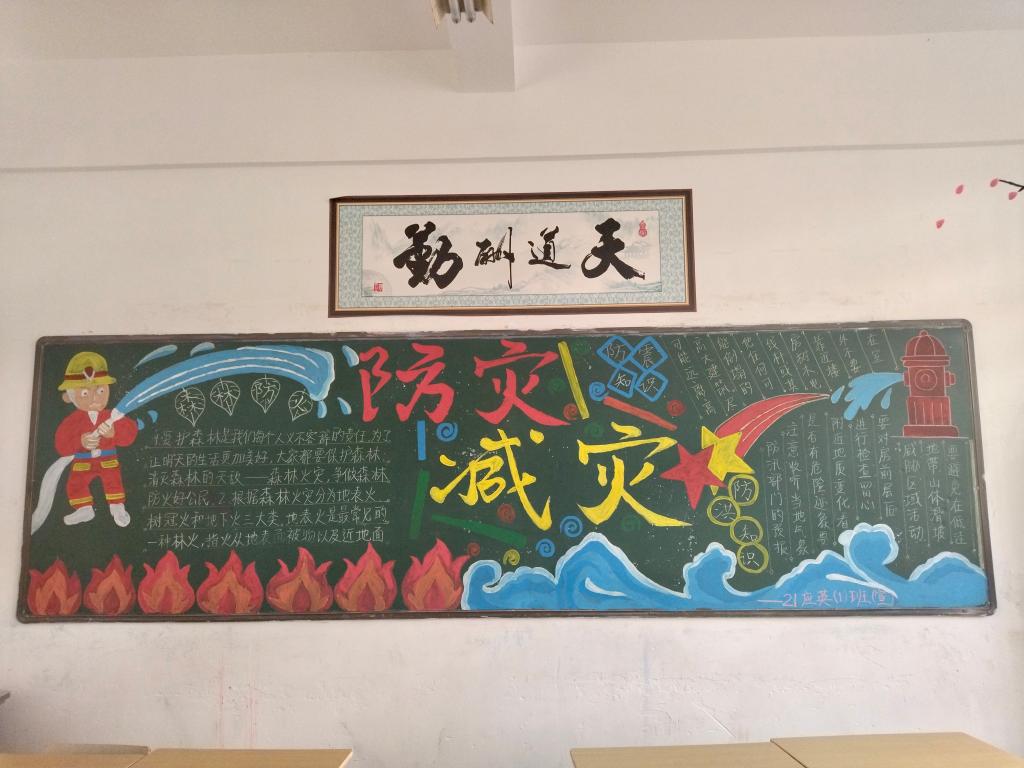 天道酬勤
防灾
减灾
森林防火
1.爱护森林是我们每个人义不容辞的责任,为了
正明天的生活更加美好,大家都要保护森林
消灭森林的天敌——森林火灾,争做森林
防火好公民。2.根据森林火灾分为地表火
树冠火和地下火三大类,地表火是最常见的
一种林火,指火从地表面被物以及近地面
防震
知识
在室
外不要
靠近楼
可能远离高
防洪知识
要避免在低洼
地带山体滑坡
威胁区域活动
要对房前屋后
进行检查留心
附近地质变化看
是否有危险迹象
注意收听当地气象
防汛部门的
——21应英(1)班